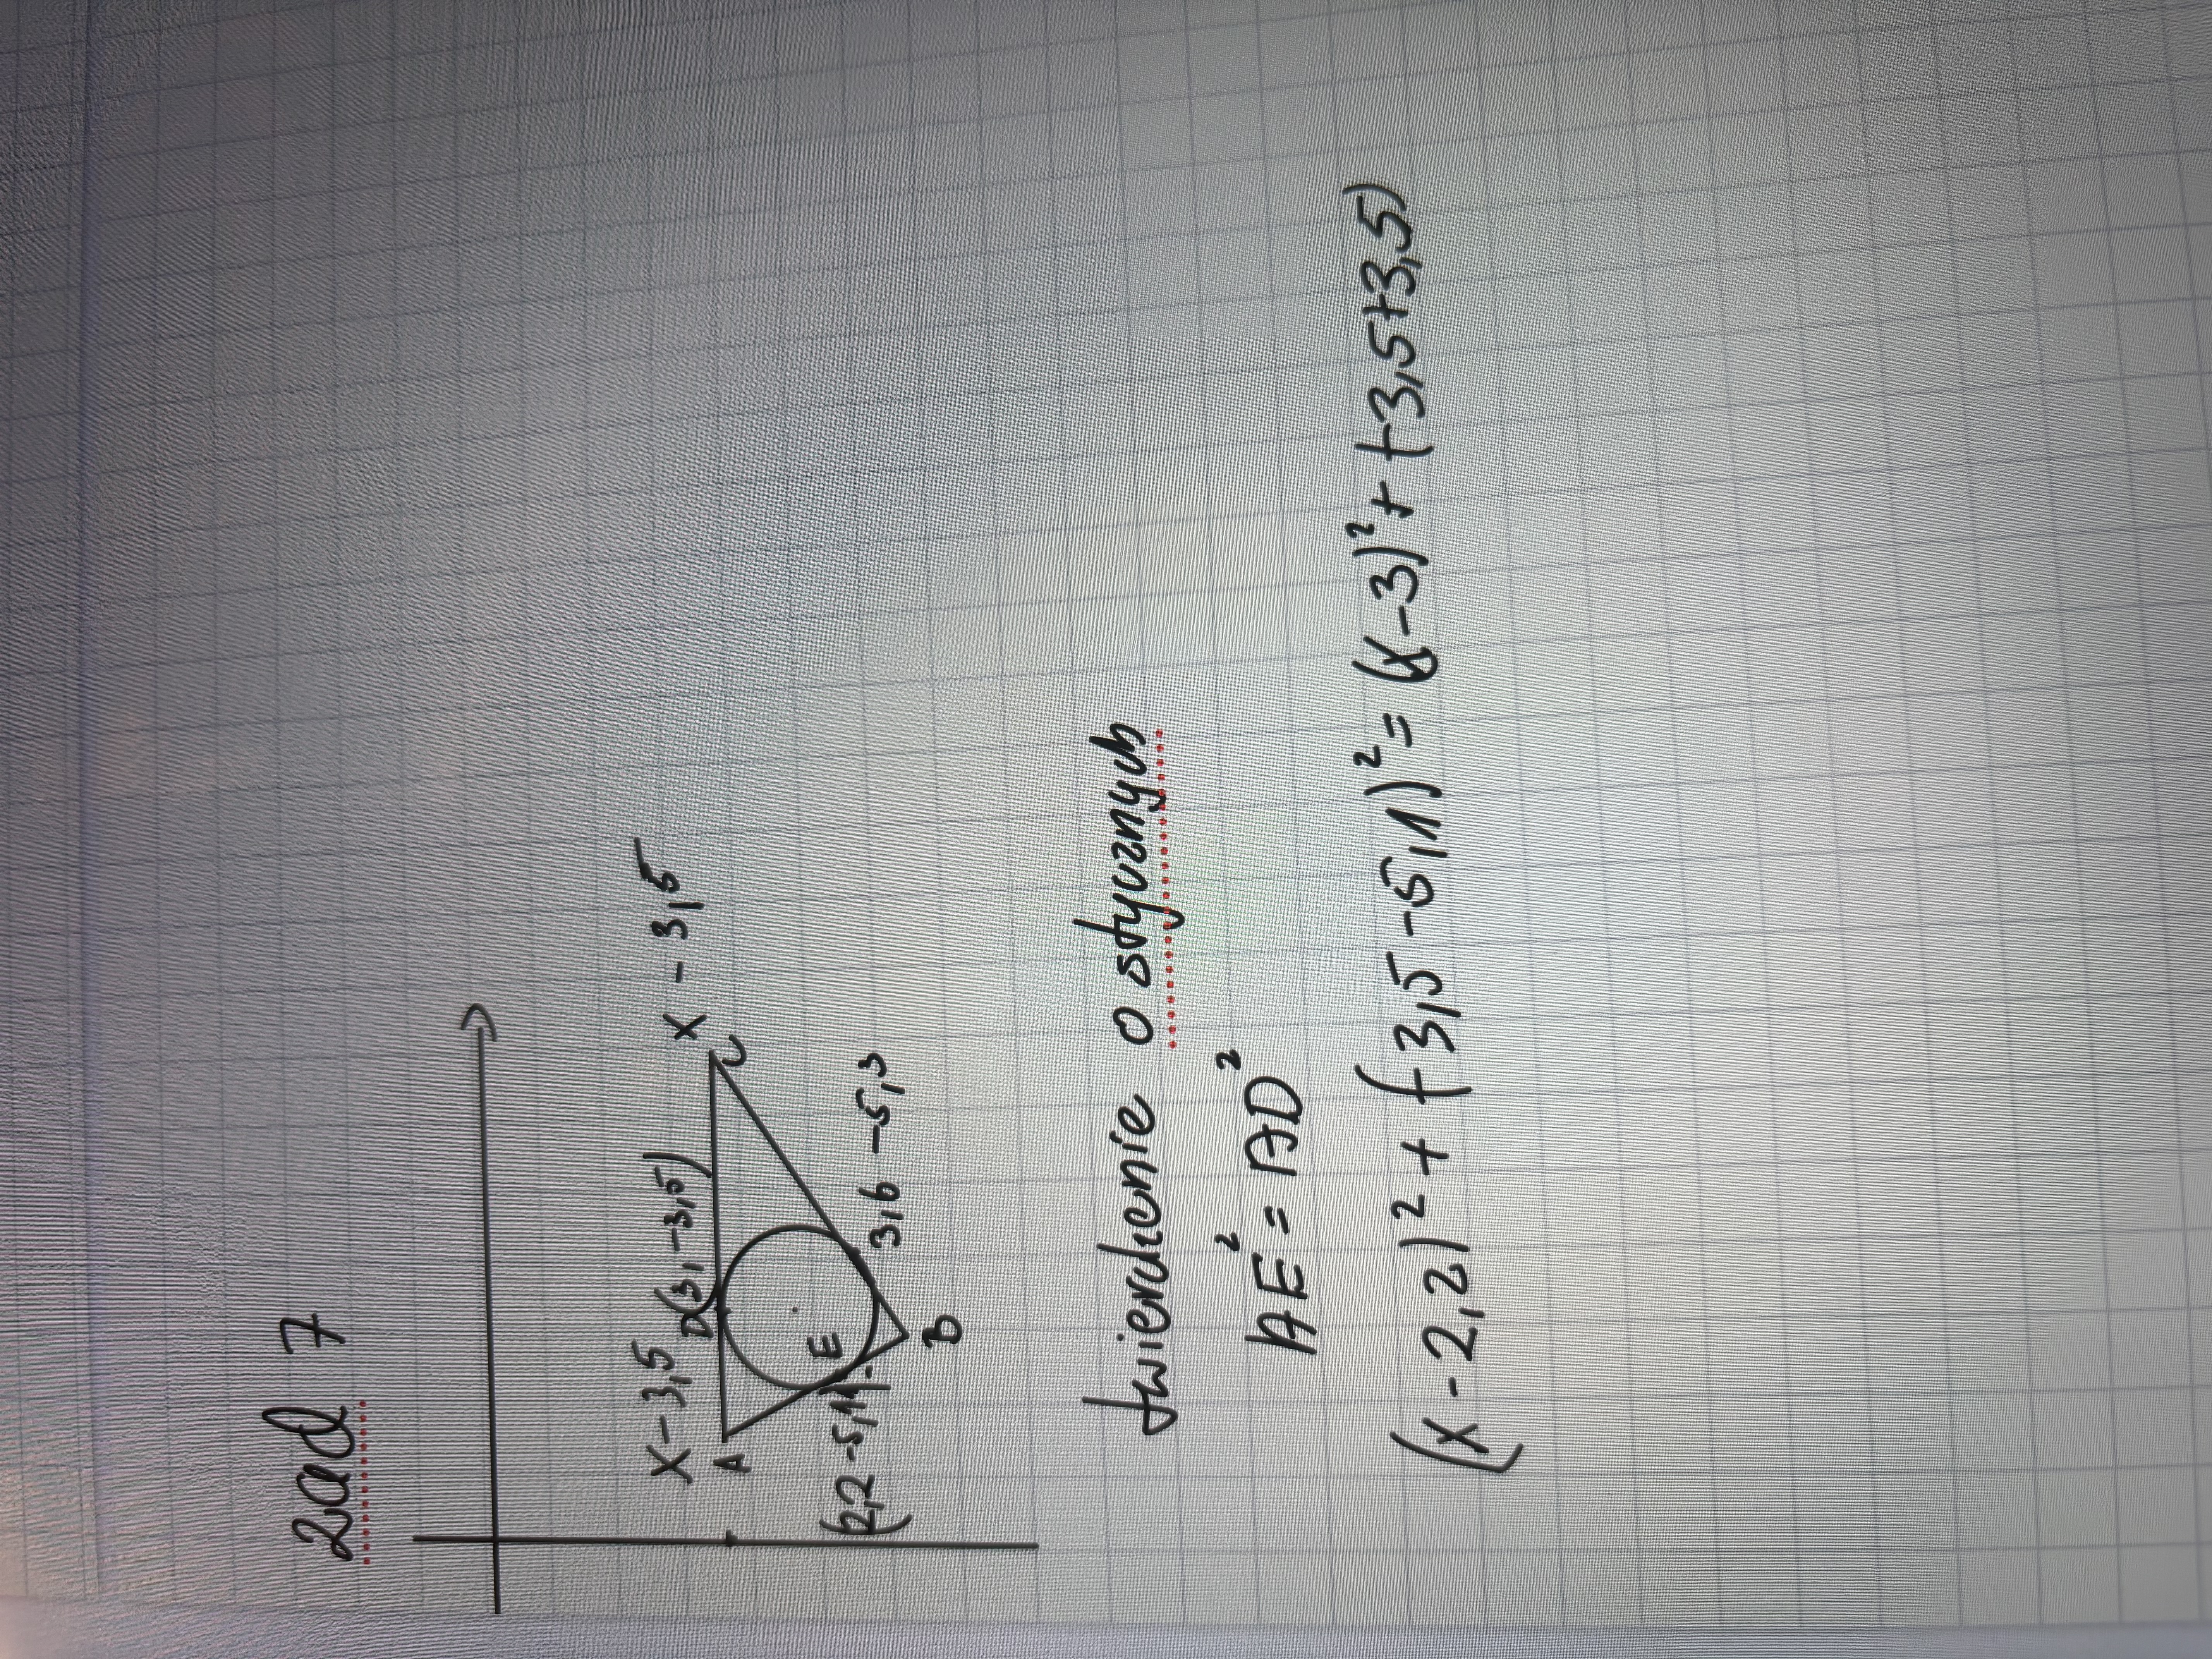 zad 7
x -3,5
D(3, -3,5)
x -3,5
A
C
E
(2,2 -5,1)
3,6 -5,3
B
twierdzenie o stycznych
AE² = AD²
(x-2,2)² + (-3,5-5,1)² = (x-3)² + (-3,5+3,5)